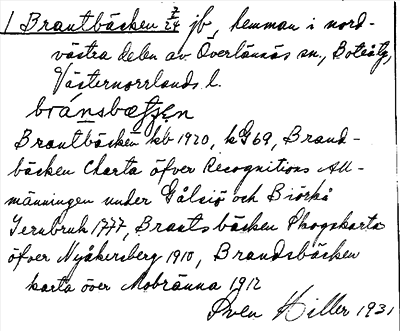 1 Brantbäcken 7/24 jb, hemman i nord-
västra delen av Överlännäs sn., Boteåtg,
Västernorrlands l.
bránsbætsen
Brantbäcken kb 1920, kG69, Brand-
bäcken Charta öfver Recognitions All-
männingen under Gålsiö och Biörkå
Jernbruk 1777, Brants bäcken Skogskarta
öfver Nyåkersberg 1910, Brandsbäcken
karta över Mobränna 1912
Sven Hiller 1931